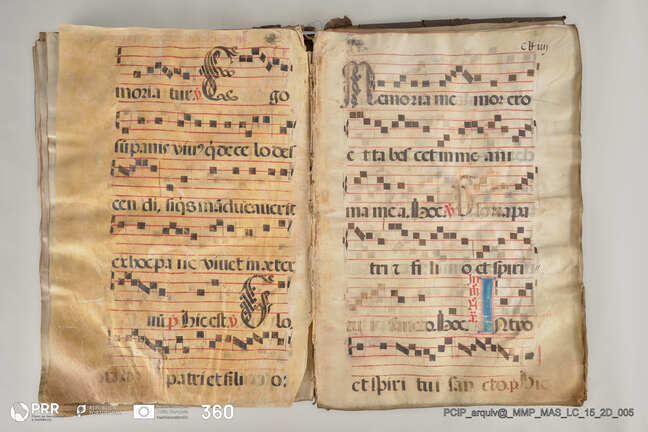 moria tur. ℣ Ego
sū panis viv⁹ q̄ de ce lo des
cen di, siq̄s māducaverit
ex hoc pa ne vivet in æter
nū. p. hic est ℣ Glo
patri et fili o:
clxiiij
Memoria me mor ero
e t ta bes cet in me ani
ma mea. hoc. ℣ Gloria pa
tri ⁊ fi li o et spiri
tui sancto. hoc. Intro
et spiri tui san cto. p. hic
PRR
360
PCIP_arquiv@_MMP_MAS_LC_15_2D_005